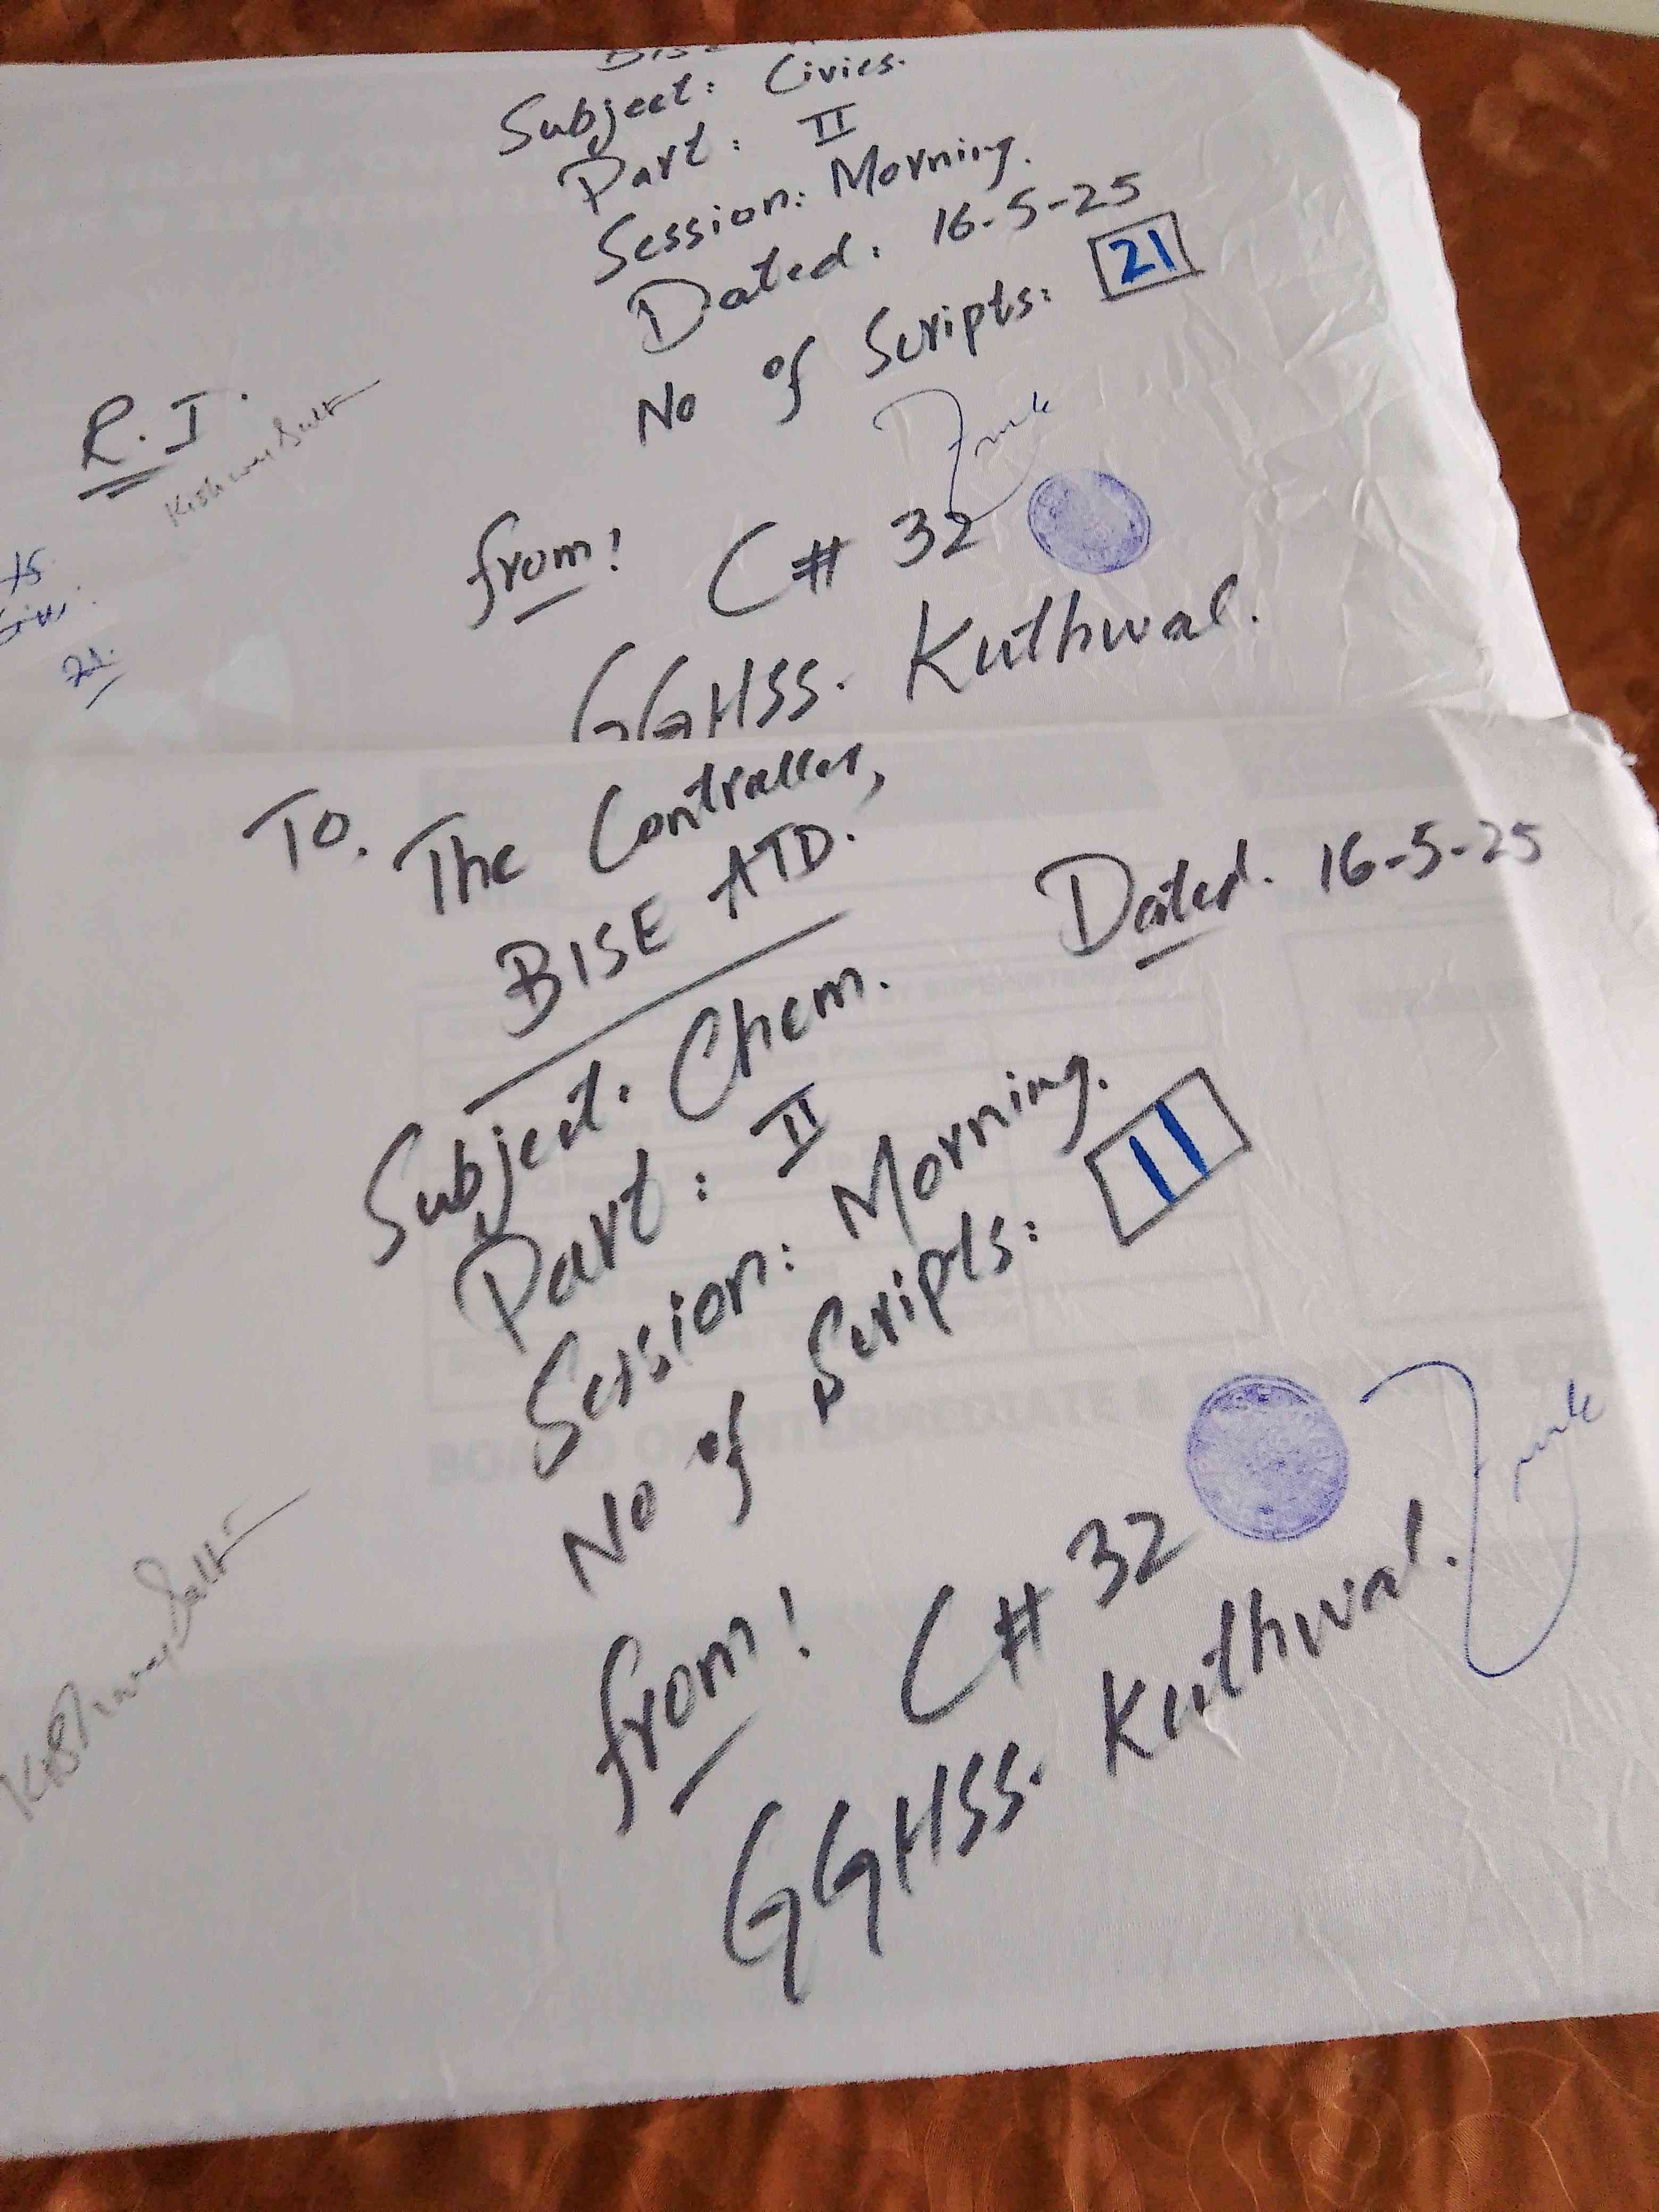 BISE
Subject: Civics.
Part: II
Session: Morning.
Dated: 16-5-25
No of Scripts: 21
R.I.
from! C# 32
GGHSS. Kuthwal.
21.
To. The Controller,
BISE ATD.
Dated. 16-5-25
Subject: Chem.
Part: II
Session: Morning.
No of Scripts: 11
from! C# 32
GGHSS. Kuthwal.